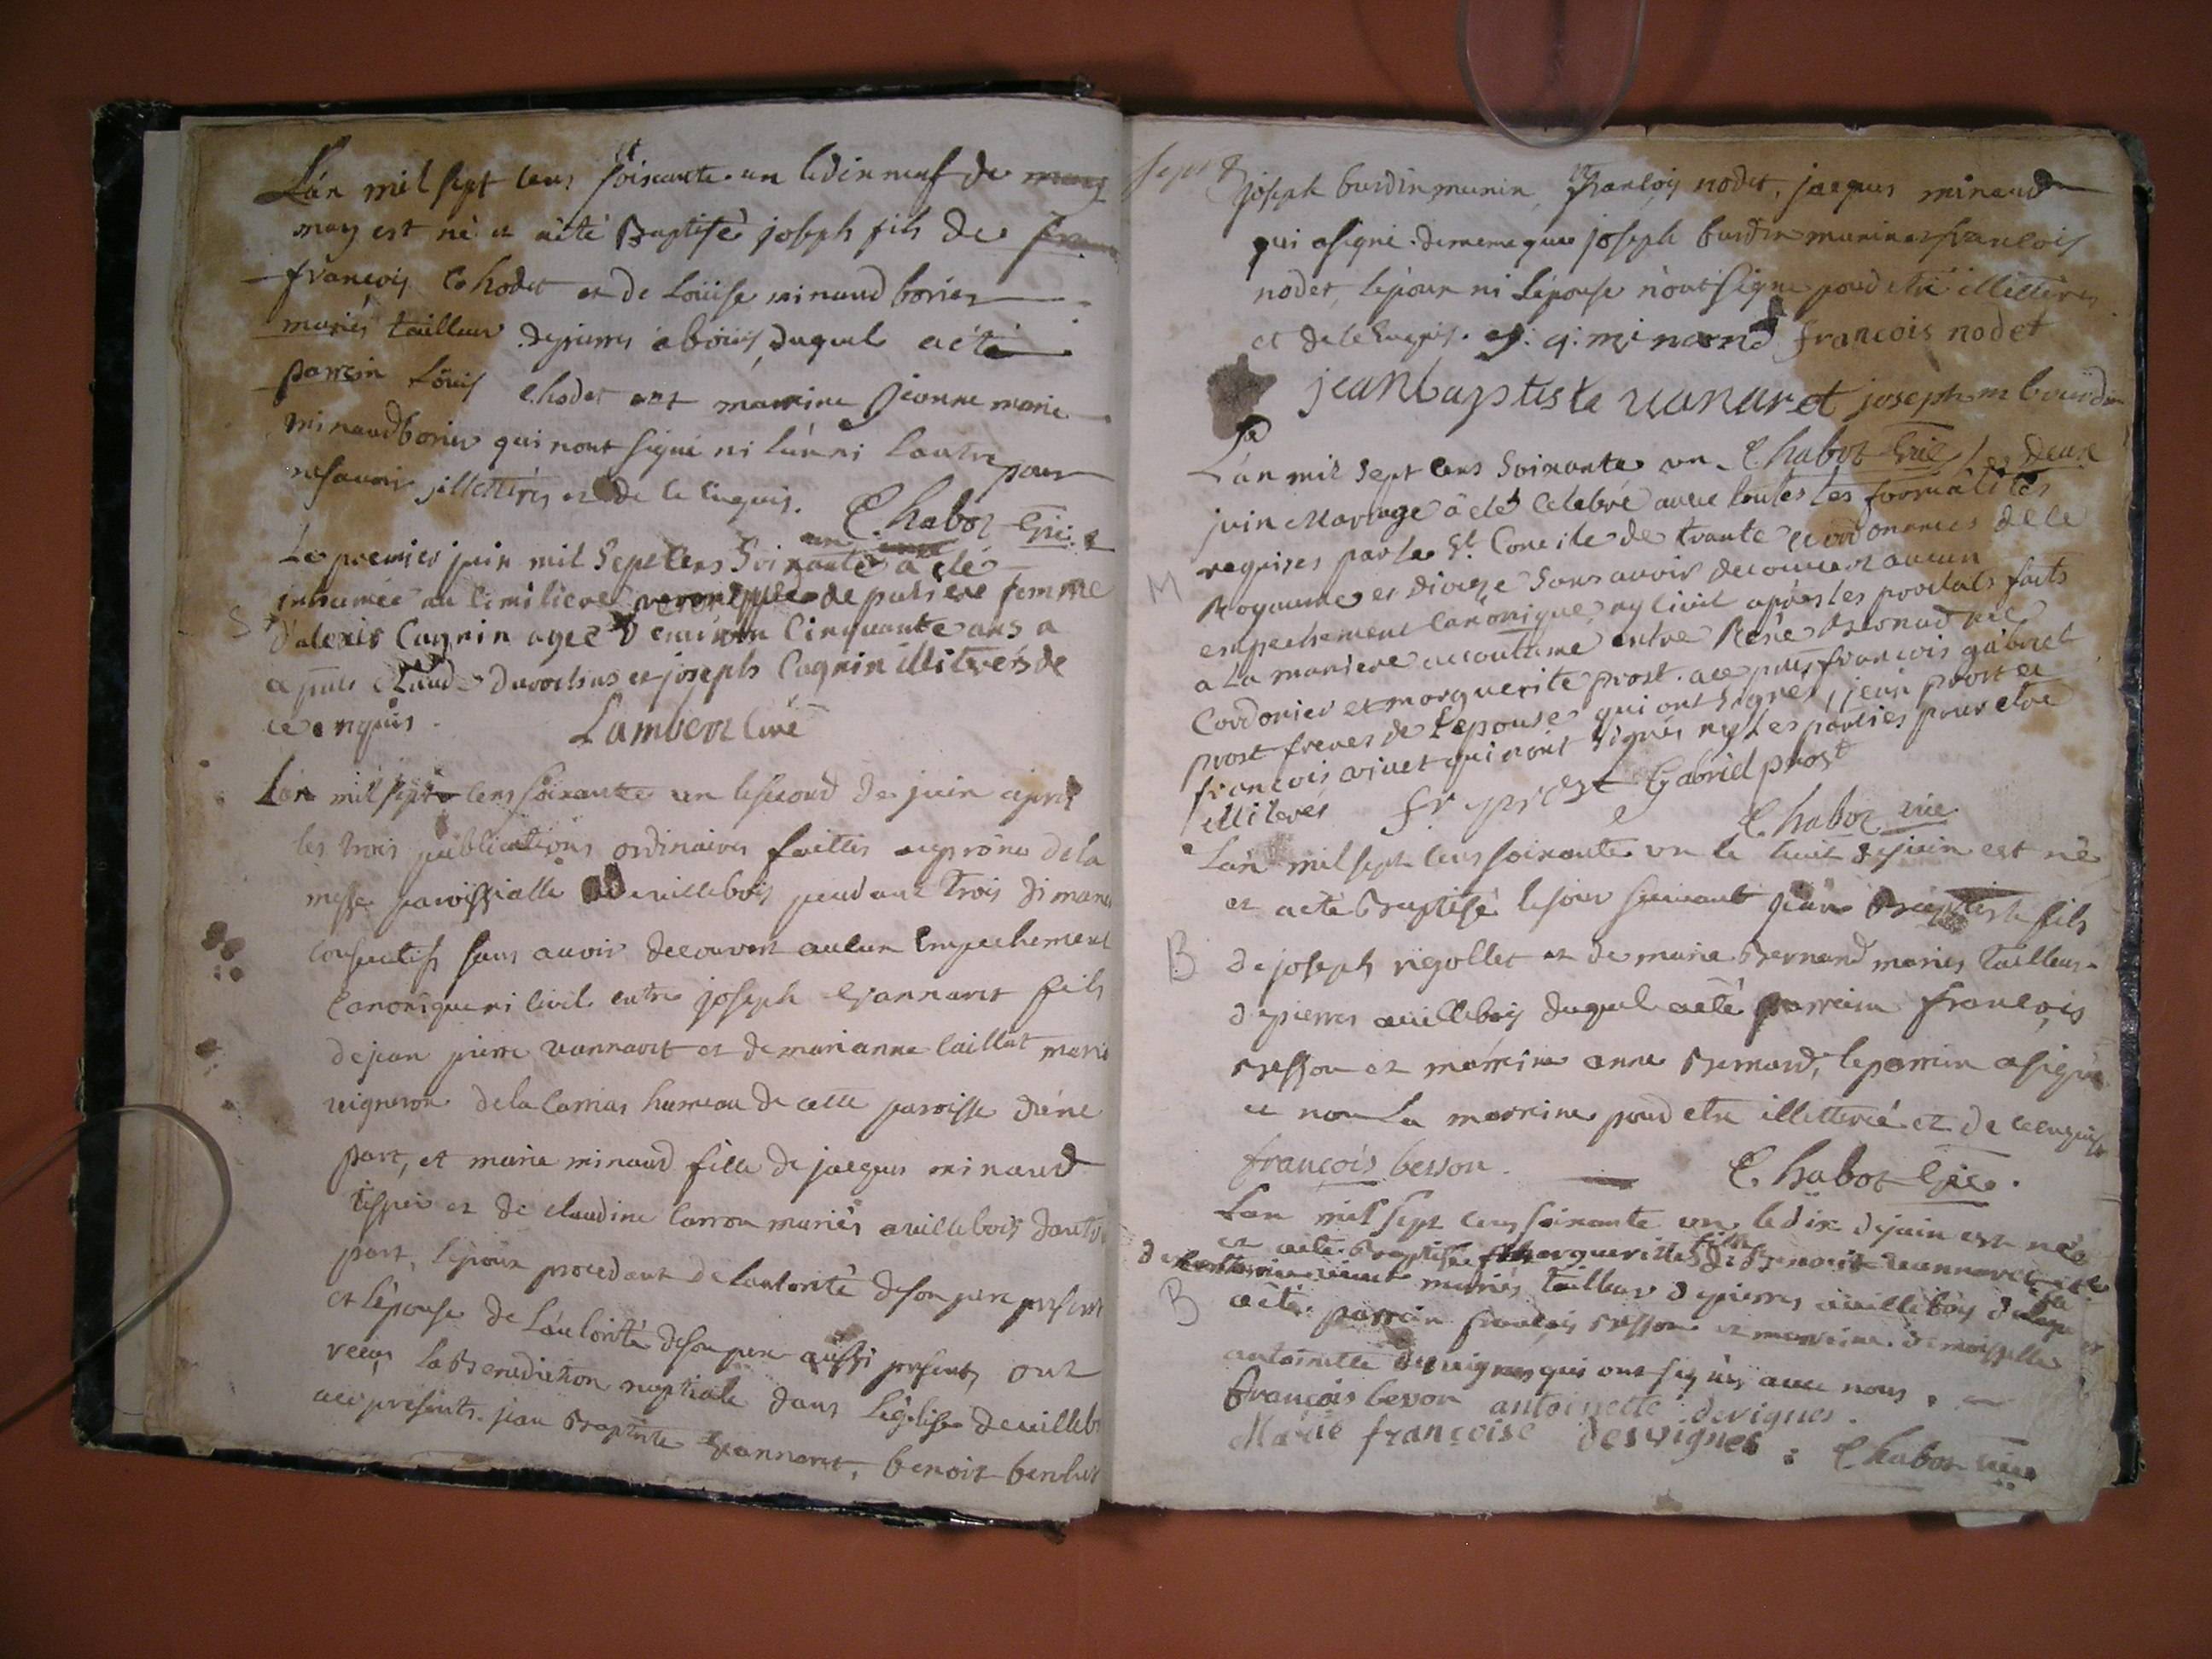 Lán mil sept cens soixante un le dix neuf de
may est né et a été Baptisé joseph fils de
françois Chodet et de Loüise minaud borier
mariés tailleur de pierres duquel a été
parrein Loüis Chodet et marreine jeanne marie
minaud borier qui n'ont signé ni l'un ni lautre pour
illettérés et de ce enquis. Chabot vic.
Le premier juin mil Sept cens Soixante un a été
inhumée au Cimitiere de femme
d'alexis Cagnin agee d'environ Cinquante ans a
Claude et joseph Cagnin illiterés de
ce enquis. Lambert Curé
Lan mil sept cens soixante un le second de juin apres
les trois publications ordinaires faittes au prône de la
messe paroissialle de villebois pendant trois diman
consecutifs sans avoir decouvert aucun Empechement
Canonique ni civil entre joseph vannaret fils
de jean pierre vannaret et de marianne caillat marié
vigneron de la hameau de cette paroisse d'une
part, et marie minaud fille de jacques minaud
tissier et de claudine Carron mariés a villebois d'autre
part, l'epoux procedant de l'autorité de son pere present
et l'épouse de l'autorité de son pere aussi present, ont
reçu la Benediction nuptiale dans l'église de villeb
présents. jean Baptiste vannaret, benoit
joseph burdin munin, françois nodet, jacques minaud
qui a signé de meme que joseph burdin munin et francois
nodet, l'epoux ni l'épouse n'ont signé pour etre illetterés
et de ce enquis. minand françois nodet
jean baptiste vanaret joseph m bourdin
L'an mil sept cens Soixante un Chabot vic Le deux
juin Mariage a été celebré avec toutes les formalités
requises par le St. Concile de trante et ordonnances de ce
M Royaume et dioceze sans avoir decouvert aucun
empechement Canonique ny Civil après les proclats faits
a la maniere accoutumé entre René
Cordonier et marguerite prost. françois gabriel
prost freres de Lepouse qui ont signés, jean prost et
françois qui n'ont signés ny les parties pour etre
illiterés fr prost Gabriel prost
Chabot vic
Lán mil sept cens soixante un le huit de juin est né
et a été Baptisé le jour suivant jean Baptiste fils
B de joseph rigollet et de marie Bernard mariés tailleur
de pierres a villebois duquel a été parrein françois
Besson et marreine anne Bernard, le parrein a signé
et non La marreine pour etre illetterée et de ce enquis
françois besson. Chabot vic.
Lan mil sept cens soixante un le dix de juin est née
et a été Baptisée margueritte fille de Benoit vannaret et
de mariés tailleur de pierres a villebois de la
B a été parrein françois Besson et marreine demoiselle
antoinette desvignes qui ont signés avec nous.
françois beson antoinette devignes.
Marie françoise desvignes : Chabot vic